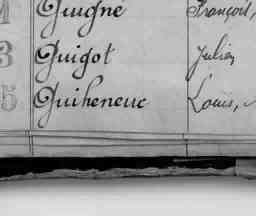 Guigne François,
3 Guigot Julien
5 Guiheneuc Louis,